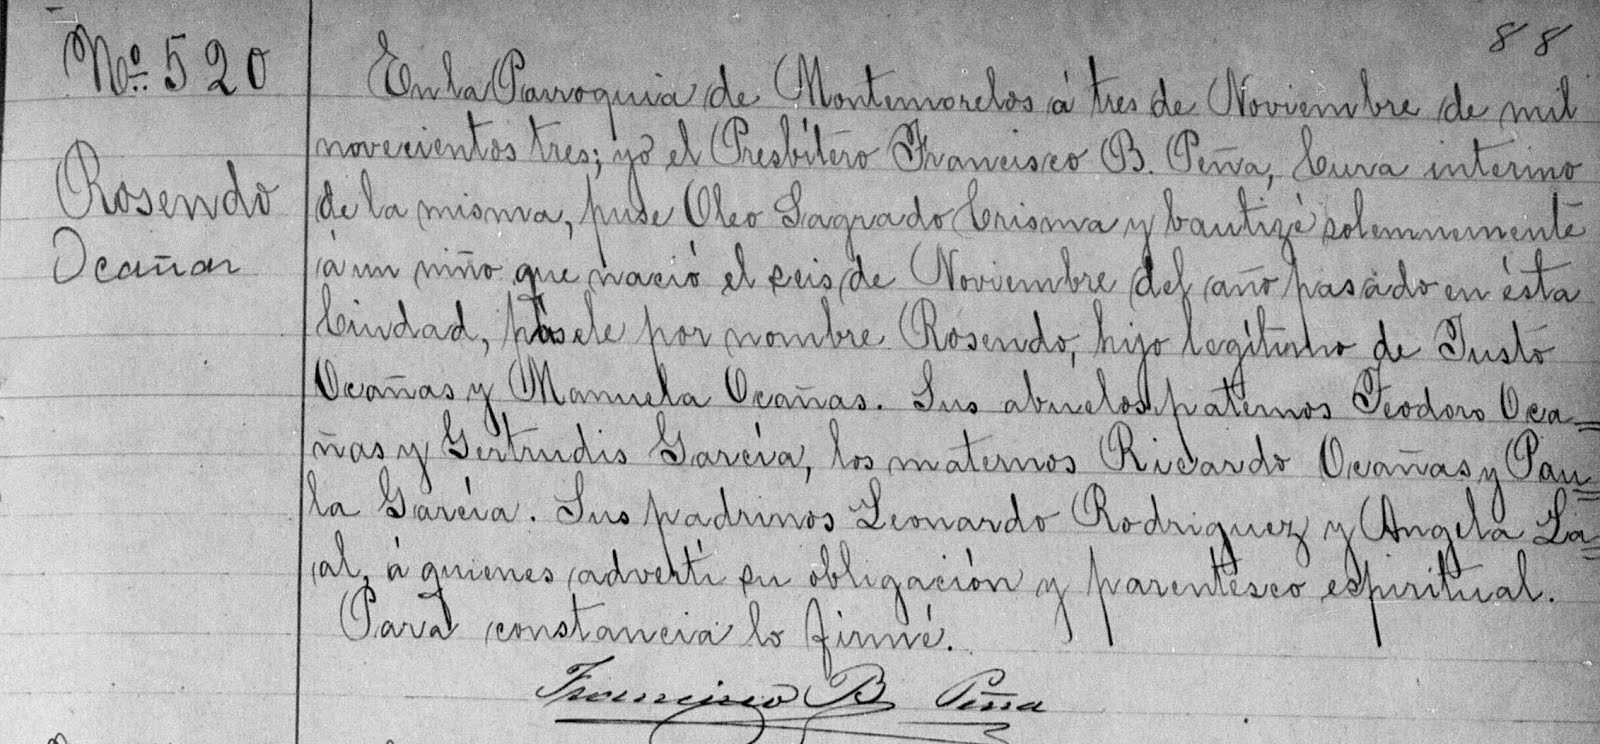 88
Nº. 520
Rosendo
Ocañas
En la Parroquia de Montemorelos á tres de Noviembre de mil
novecientos tres; yo el Presbítero Francisco B. Peña, Cura interino
de la misma, puse Oleo Sagrado Crisma y bautizé solemnemente
á un niño que nació el seis de Noviembre del año pasado en ésta
Ciudad, púsele por nombre Rosendo, hijo legítimo de Justo
Ocañas y Manuela Ocañas. Sus abuelos paternos Teodoro Oca=
ñas y Gertrudis García, los maternos Ricardo Ocañas y Pau=
la García. Sus padrinos Leonardo Rodriguez y Angela
al, á quienes advertí su obligación y parentesco espiritual.
Para constancia lo firmé.
Francisco B Peña